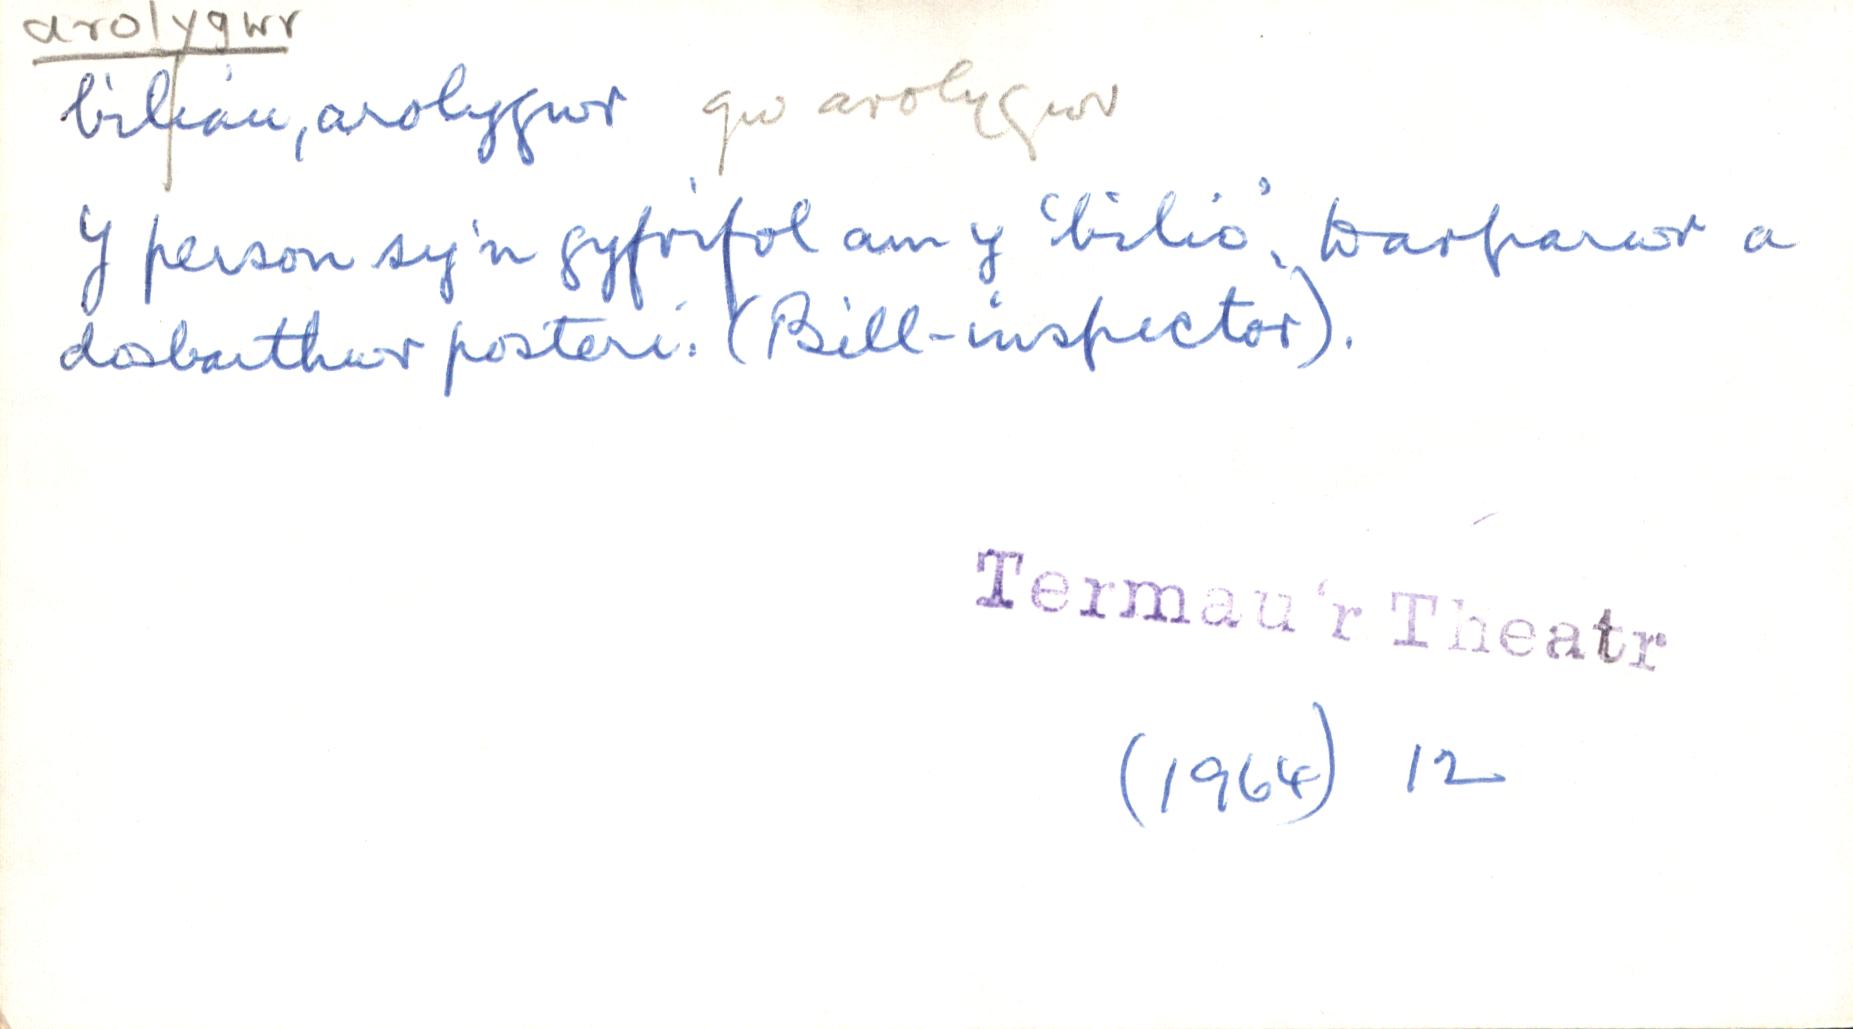 arolygwr
biliau, arolygwr gw arolygwr
Y person sy'n gyfrifol am y 'bilio', Darparwr a
dosbarthwr posteri. (Bill-inspector).
Termau'r Theatr
(1964) 12